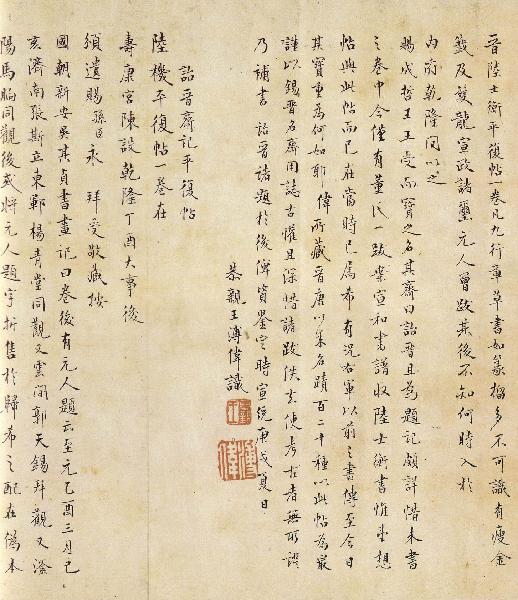 晉陸士衡平復帖一卷凡九行章草書如篆籀多不可識有瘦金
籤及雙龍宣政諸璽元人曾跋其後不知何時入於
內府乾隆間以之
賜成哲王王受而寶之名其齋曰詒晉且為題記頗詳惜未書
之卷中今僅有董氏一跋案宣和書譜收陸士衡書惟
帖與此帖而已在當時已屬希有況右軍以前之書傳至今日
其寶重為何如耶偉所藏晉唐以來名蹟百二十種以此帖為最
謹以錫晉名齋用誌古懽且深惜諸跋佚去使考古者無所證
乃補書詒晉諸題於後俾資鑒定時宣統庚戌夏日
恭親王溥偉識
詒晉齋記平復帖
陸機平復帖一卷在
壽康宮陳設乾隆丁酉大事後
頒遺賜孫臣永 拜受敬藏按
國朝新安吳其貞書畫記曰卷後有元人題云至元乙酉三月己
亥濟南張斯立東鄆楊青堂同觀又雲間郭天錫拜觀又滏
陽馬昫同觀後或將元人題字折售於歸希之配在偽本